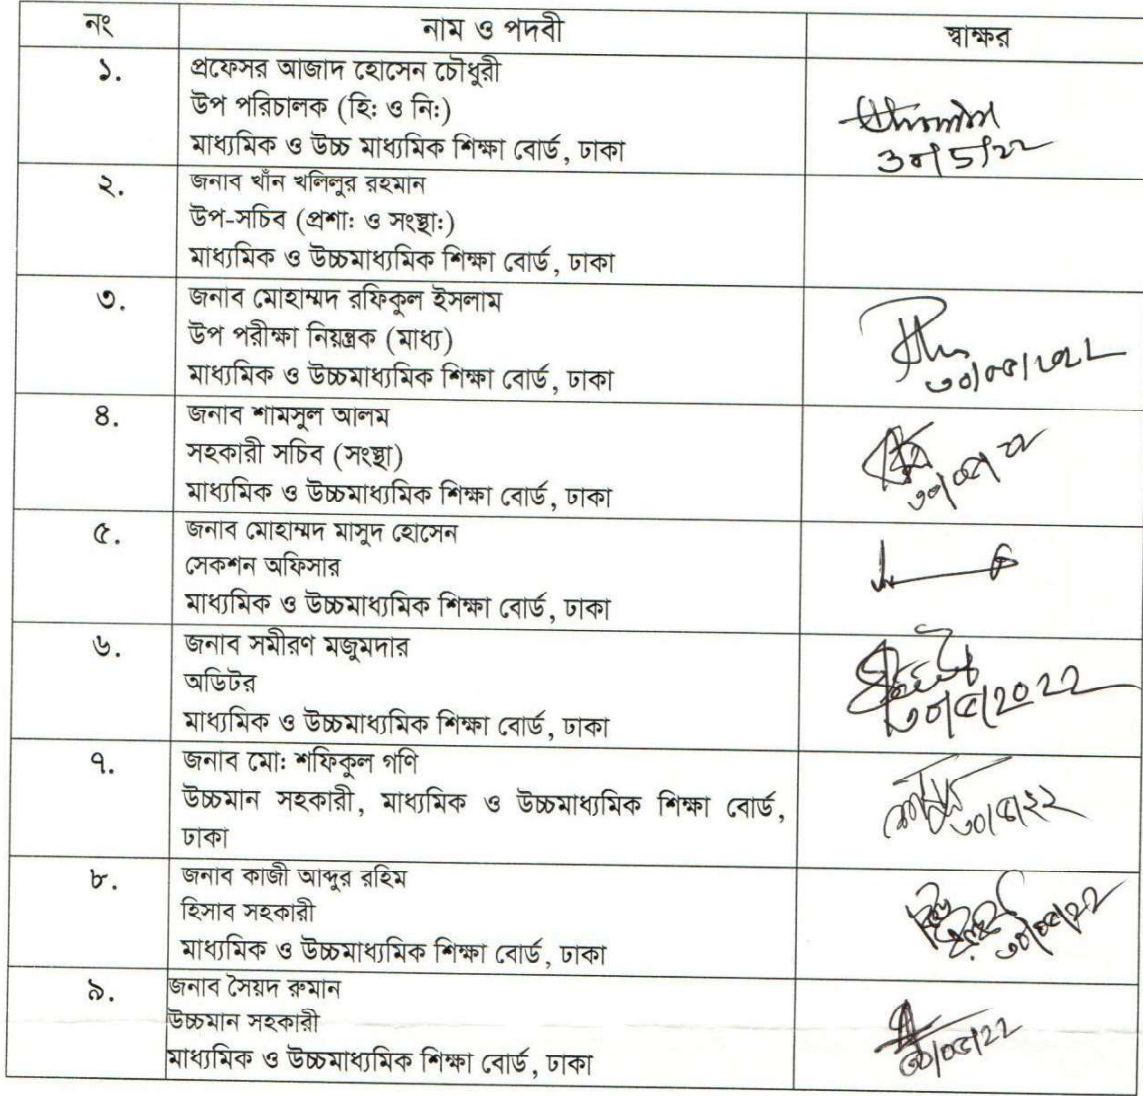 নং নাম ও পদবী স্বাক্ষর
১. প্রফেসর আজাদ হোসেন চৌধুরী
উপ পরিচালক (হি: ও নি:)
মাধ্যমিক ও উচ্চ মাধ্যমিক শিক্ষা বোর্ড, ঢাকা
৩০/5/২২
২. জনাব খাঁন খলিলুর রহমান
উপ-সচিব (প্রশা: ও সংস্থা:)
মাধ্যমিক ও উচ্চমাধ্যমিক শিক্ষা বোর্ড, ঢাকা
৩. জনাব মোহাম্মদ রফিকুল ইসলাম
উপ পরীক্ষা নিয়ন্ত্রক (মাধ্য)
মাধ্যমিক ও উচ্চমাধ্যমিক শিক্ষা বোর্ড, ঢাকা
৩০/০৫/২০২২
৪. জনাব শামসুল আলম
সহকারী সচিব (সংস্থা)
মাধ্যমিক ও উচ্চমাধ্যমিক শিক্ষা বোর্ড, ঢাকা
৩০/০৫/২২
৫. জনাব মোহাম্মদ মাসুদ হোসেন
সেকশন অফিসার
মাধ্যমিক ও উচ্চমাধ্যমিক শিক্ষা বোর্ড, ঢাকা
৬. জনাব সমীরণ মজুমদার
অডিটর
মাধ্যমিক ও উচ্চমাধ্যমিক শিক্ষা বোর্ড, ঢাকা
৩০/৫/২০২২
৭. জনাব মো: শফিকুল গণি
উচ্চমান সহকারী, মাধ্যমিক ও উচ্চমাধ্যমিক শিক্ষা বোর্ড,
ঢাকা
৩০/৫/২২
৮. জনাব কাজী আব্দুর রহিম
হিসাব সহকারী
মাধ্যমিক ও উচ্চমাধ্যমিক শিক্ষা বোর্ড, ঢাকা
৩০/০৫/২২
৯. জনাব সৈয়দ রুমান
উচ্চমান সহকারী
মাধ্যমিক ও উচ্চমাধ্যমিক শিক্ষা বোর্ড, ঢাকা
৩০/০৫/২২